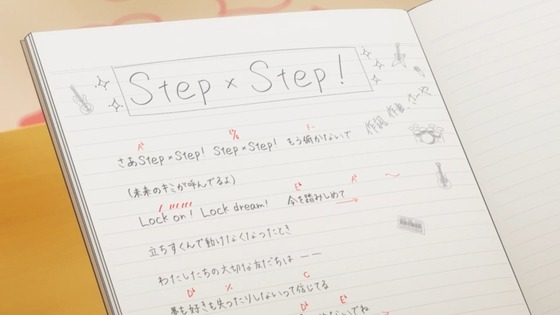 Step × Step!
作詞 作曲 さーや
さあStep×Step! Step×Step! もう俯かないで
(未来のキミが呼んでるよ)
Lock on! Lock dream! 今を踏みしめて
立ちすくんで動けなくなったとき
わたしたちの大切な友だちは ——
夢も好きも失ったりしないって信じてる